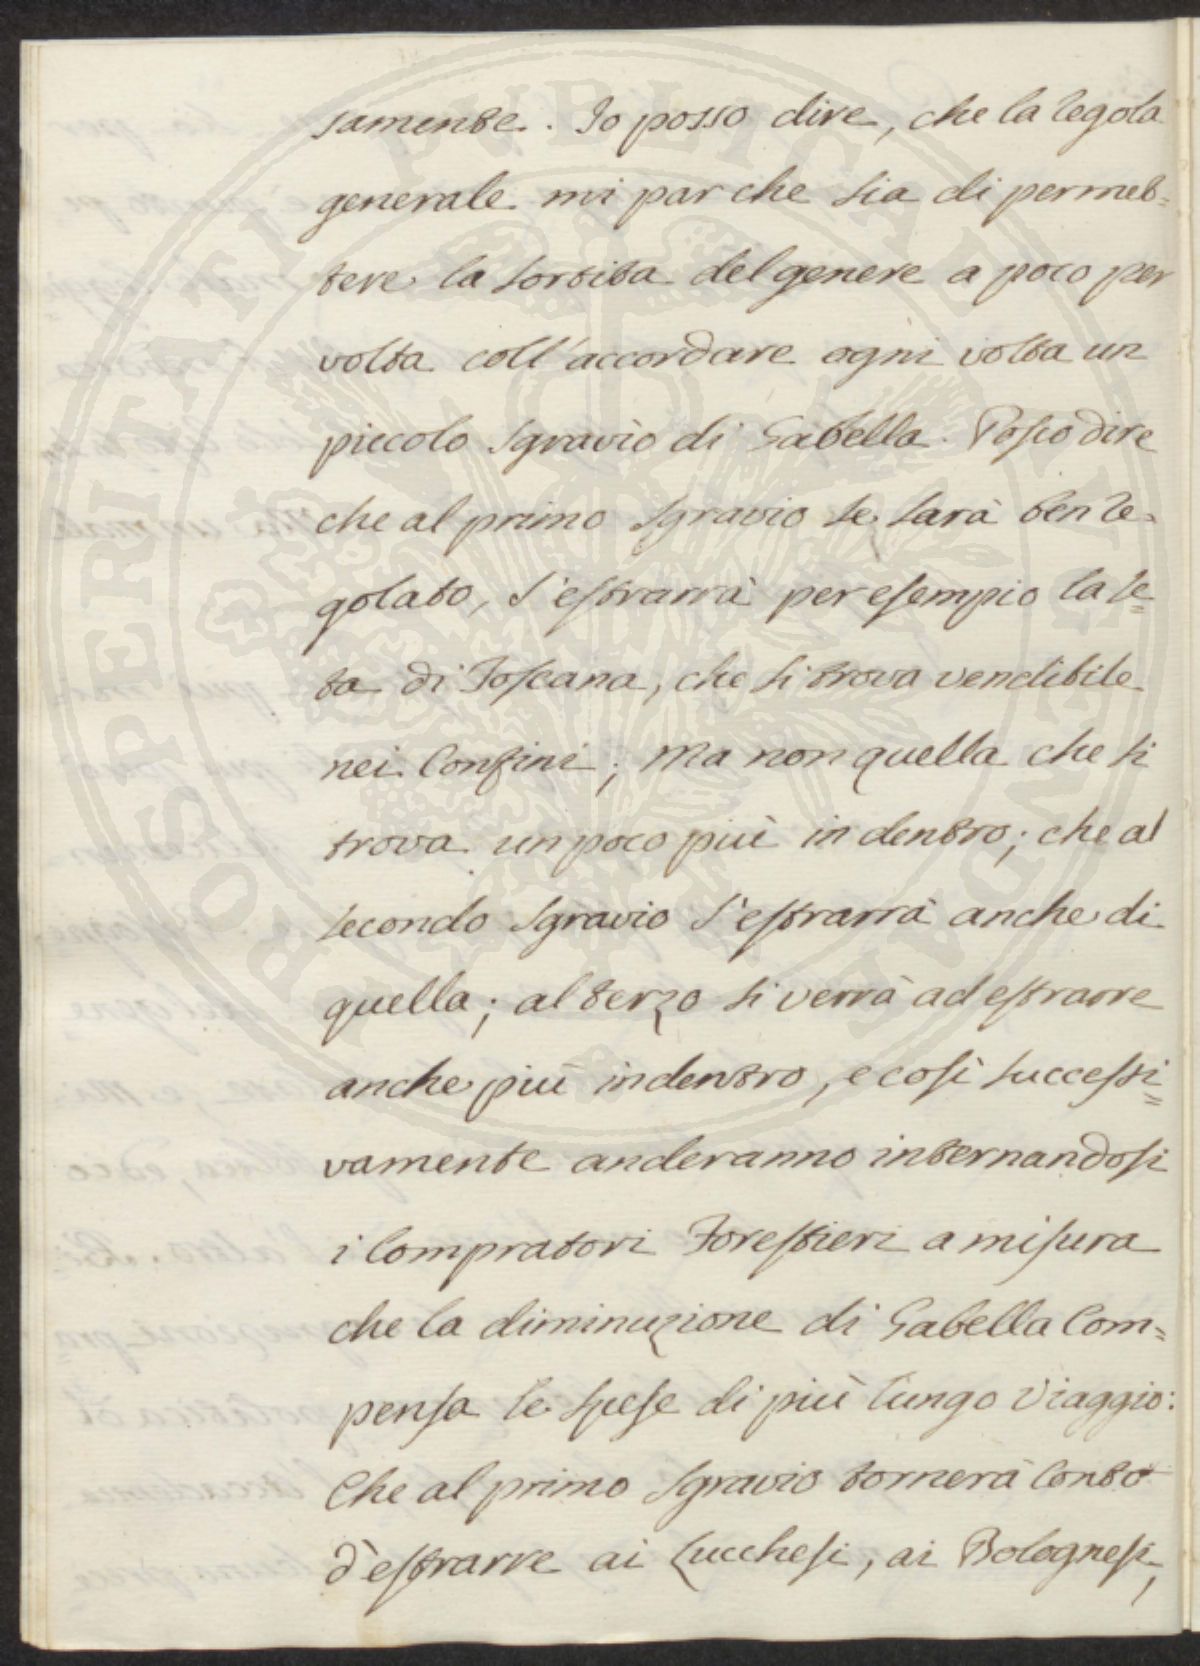 samente. Io posso dire, che la regola
generale mi par che sia di permet=
tere la sortita del genere a poco per
volta coll'accordare ogni volta un
piccolo sgravio di Gabella. Posso dire
che al primo sgravio se sarà ben re=
golato, s'estrarrà per esempio la se=
ta di Toscana, che si trova vendibile
nei Confini; ma non quella che si
trova un poco più in dentro; che al
secondo sgravio s'estrarrà anche di
quella; al terzo si verrà ad estrarre
anche più indentro, e così successi=
vamente anderanno internandosi
i Compratori Forestieri a misura
che la diminuzione di Gabella Com=
pensa le spese di più lungo Viaggio:
Che al primo sgravio tornerà Conto
d'estrarre ai Lucchesi, ai Bolognesi,
PROSPERITATI PUBLICAE AUGENDAE